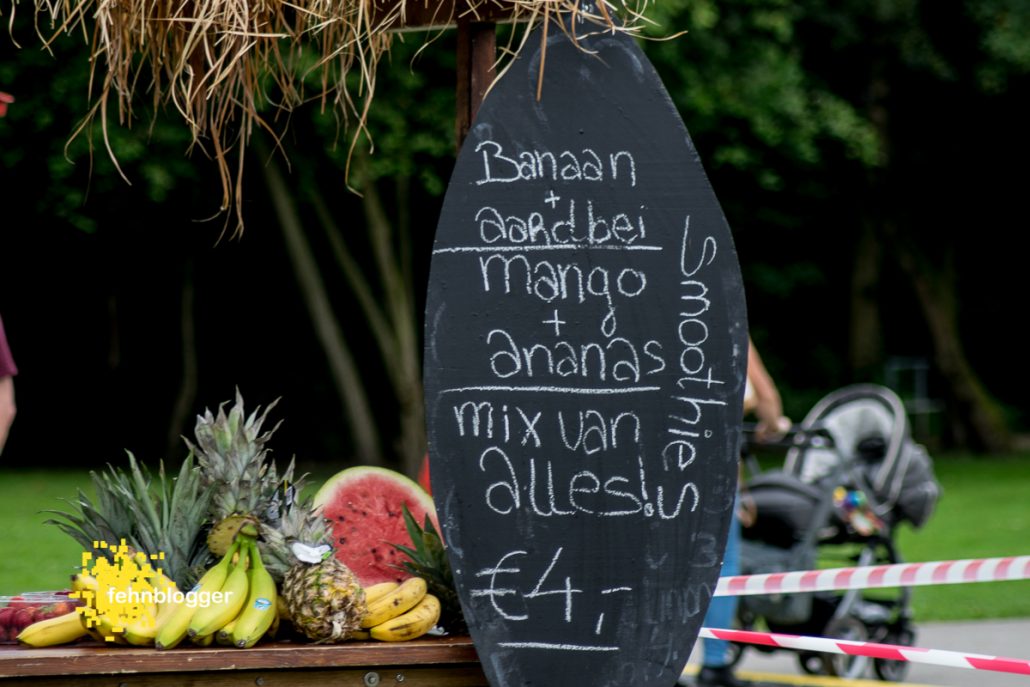 Banaan
+
aardbei
mango
+
ananas
mix van
alles!
Smoothie's
€4,-
fehnblogger